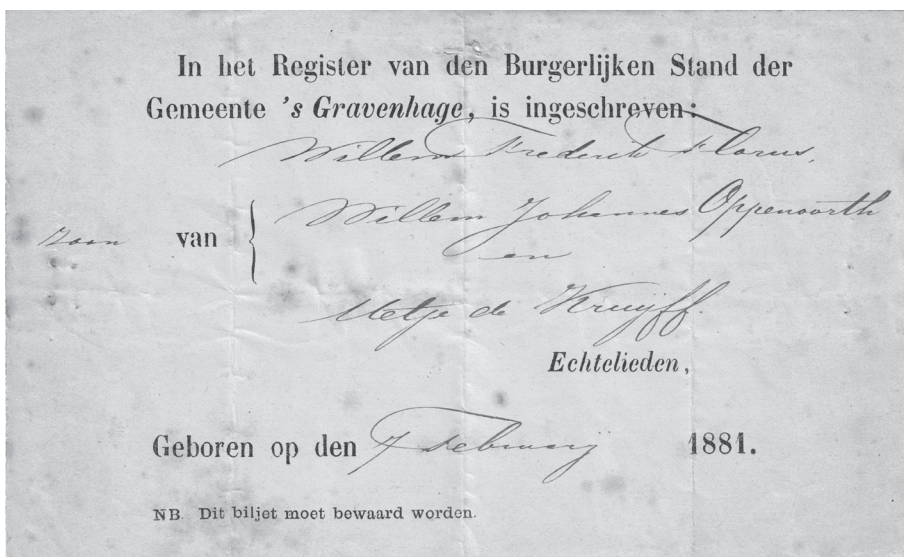 In het Register van den Burgerlijken Stand der
Gemeente 's Gravenhage, is ingeschreven:
Willem Frederik Florus,
Willem Johannes Oppenoorth
zoon van
en
Metje de Kruijff.
Echtelieden,
Geboren op den 7 Februarij 1881.
NB. Dit biljet moet bewaard worden.